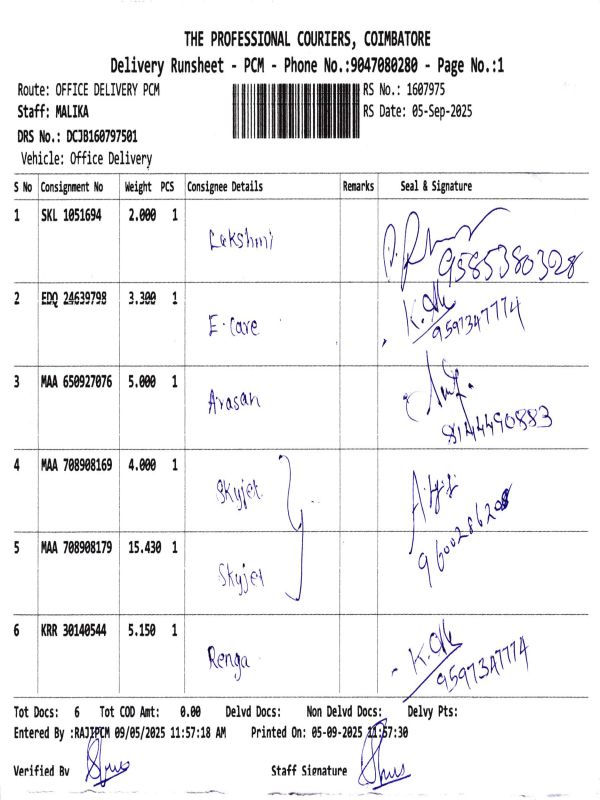 THE PROFESSIONAL COURIERS, COIMBATORE
Delivery Runsheet - PCM - Phone No.:9047080280 - Page No.:1
Route: OFFICE DELIVERY PCM RS No.: 1607975
Staff: MALIKA RS Date: 05-Sep-2025
DRS No.: DCJB160797501
Vehicle: Office Delivery
S No Consignment No Weight PCS Consignee Details Remarks Seal & Signature
1 SKL 1051694 2.000 1 Lakshmi
9585380328
2 EDQ 24639798 3.300 1 E-care K.
9597347774
3 MAA 650927076 5.000 1 Arasan
8144490883
4 MAA 708908169 4.000 1 Skyjet
9600286208
5 MAA 708908179 15.430 1 Skyjet
6 KRR 30140544 5.150 1 Renga K.
9597347774
Tot Docs: 6 Tot COD Amt: 0.00 Delvd Docs: Non Delvd Docs: Delvy Pts:
Entered By :RAJIPCM 09/05/2025 11:57:18 AM Printed On: 05-09-2025 11:57:30
Verified By Staff Signature